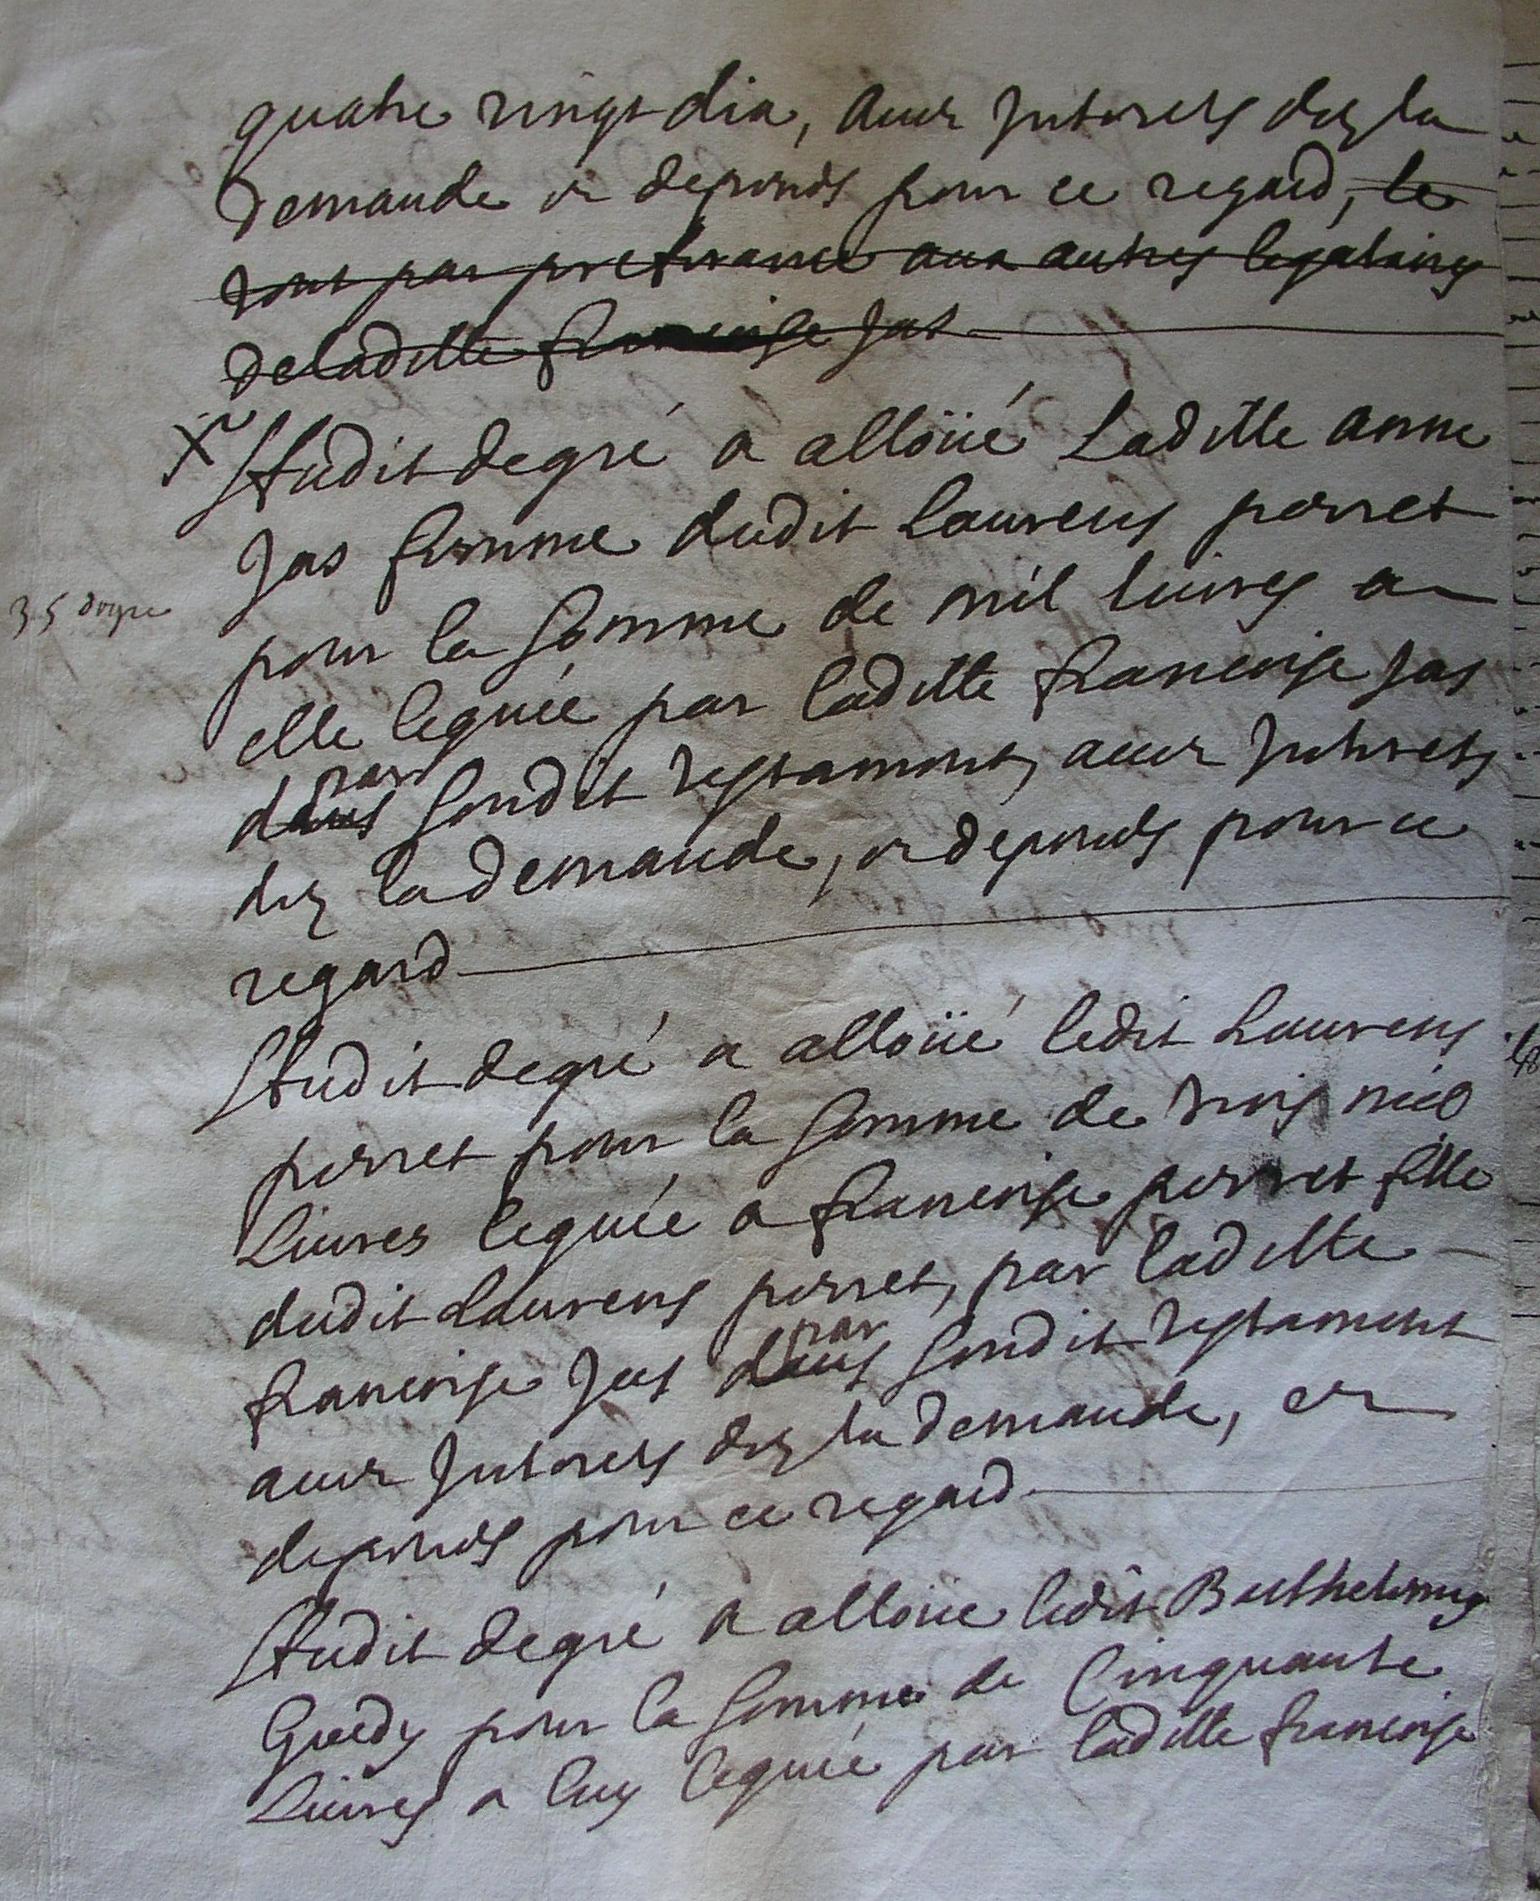 quatre vingt dix, avec Interets dez la
demande et depends pour ce regard, ~~le~~
~~tout par preferance aux autres legataires~~
~~de laditte francoise Jas~~
X Audit degré a alloüé Laditte anne
Jas femme dudit Laurens perret
35 degre
pour la somme de mil livres a
elle leguée par laditte francoise Jas
~~dans~~ par sondit testament, avec Interets
dez la demande, et depends pour ce
regard
Audit degré a alloüé ledit Laurens
perret pour la somme de trois mil
Livres leguée a francoise perret fille
dudit Laurens perret, par laditte
francoise Jas ~~dans~~ par sondit testament
avec Interets dez la demande, et
depends pour ce regard
Audit degré a alloüe ledit Barthelemy
pour la somme de Cinquante
Livres a luy leguée par laditte francoise